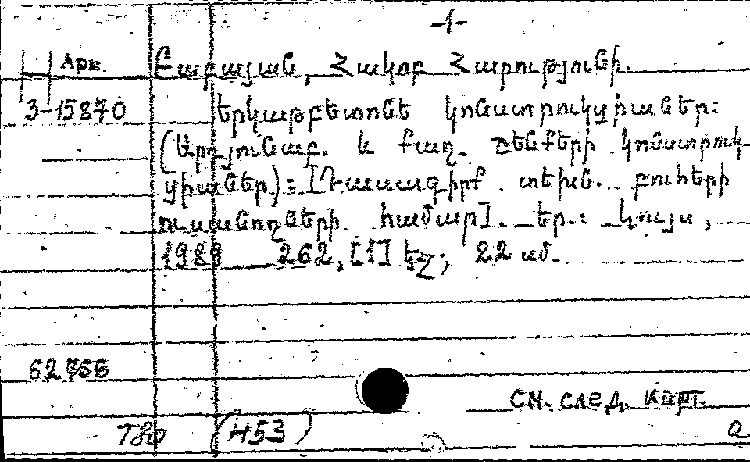 -1-
Арк. Բաբայան, Հակոբ Հարությունի.
3-15870 Երկաթբետոնե կոնստրուկցիաներ:
(Արդյունաբ. և քաղ. շենքերի կոնստրուկ-
ցիաներ): [Դասագիրք տեխն. բուհերի
ուսանողների համար]. Եր.: Լույս,
1989 262, [1] էջ; 22 սմ.
62756
(453)
см. след. карт.
а